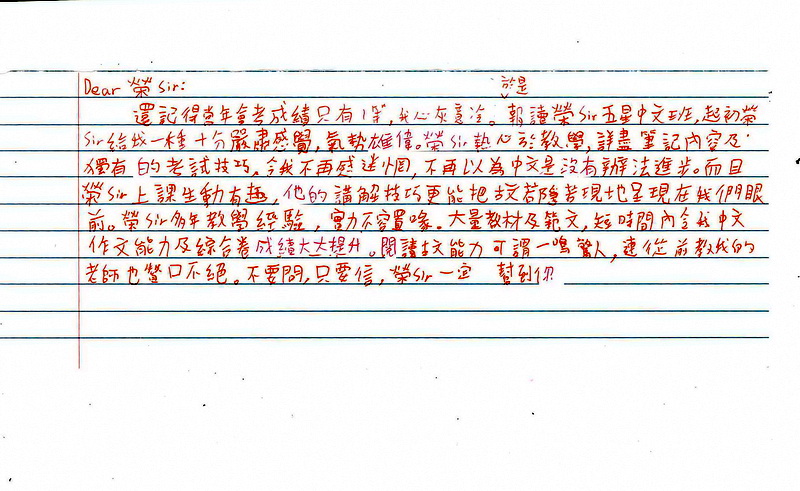 Dear 榮 Sir:
於是
還記得當年會考成績只有1等,我心灰意冷。報讀榮Sir五星中文班,起初榮
Sir給我一種十分嚴肅感覺,氣勢雄偉。榮Sir熱心於教學,詳盡筆記內容及
獨有的考試技巧,令我不再感迷惘,不再以為中文是沒有辦法進步。而且
榮Sir上課生動有趣,他的講解技巧更能把古文若隱若現地呈現在我們眼
前。榮Sir多年教學經驗,實力不容置喙。大量教材及範文,短時間內令我中文
作文能力及綜合卷成績大大提升。閱讀古文能力可謂一鳴驚人,連從前教我的
老師也讚口不絕。不要問,只要信,榮Sir一定幫到你